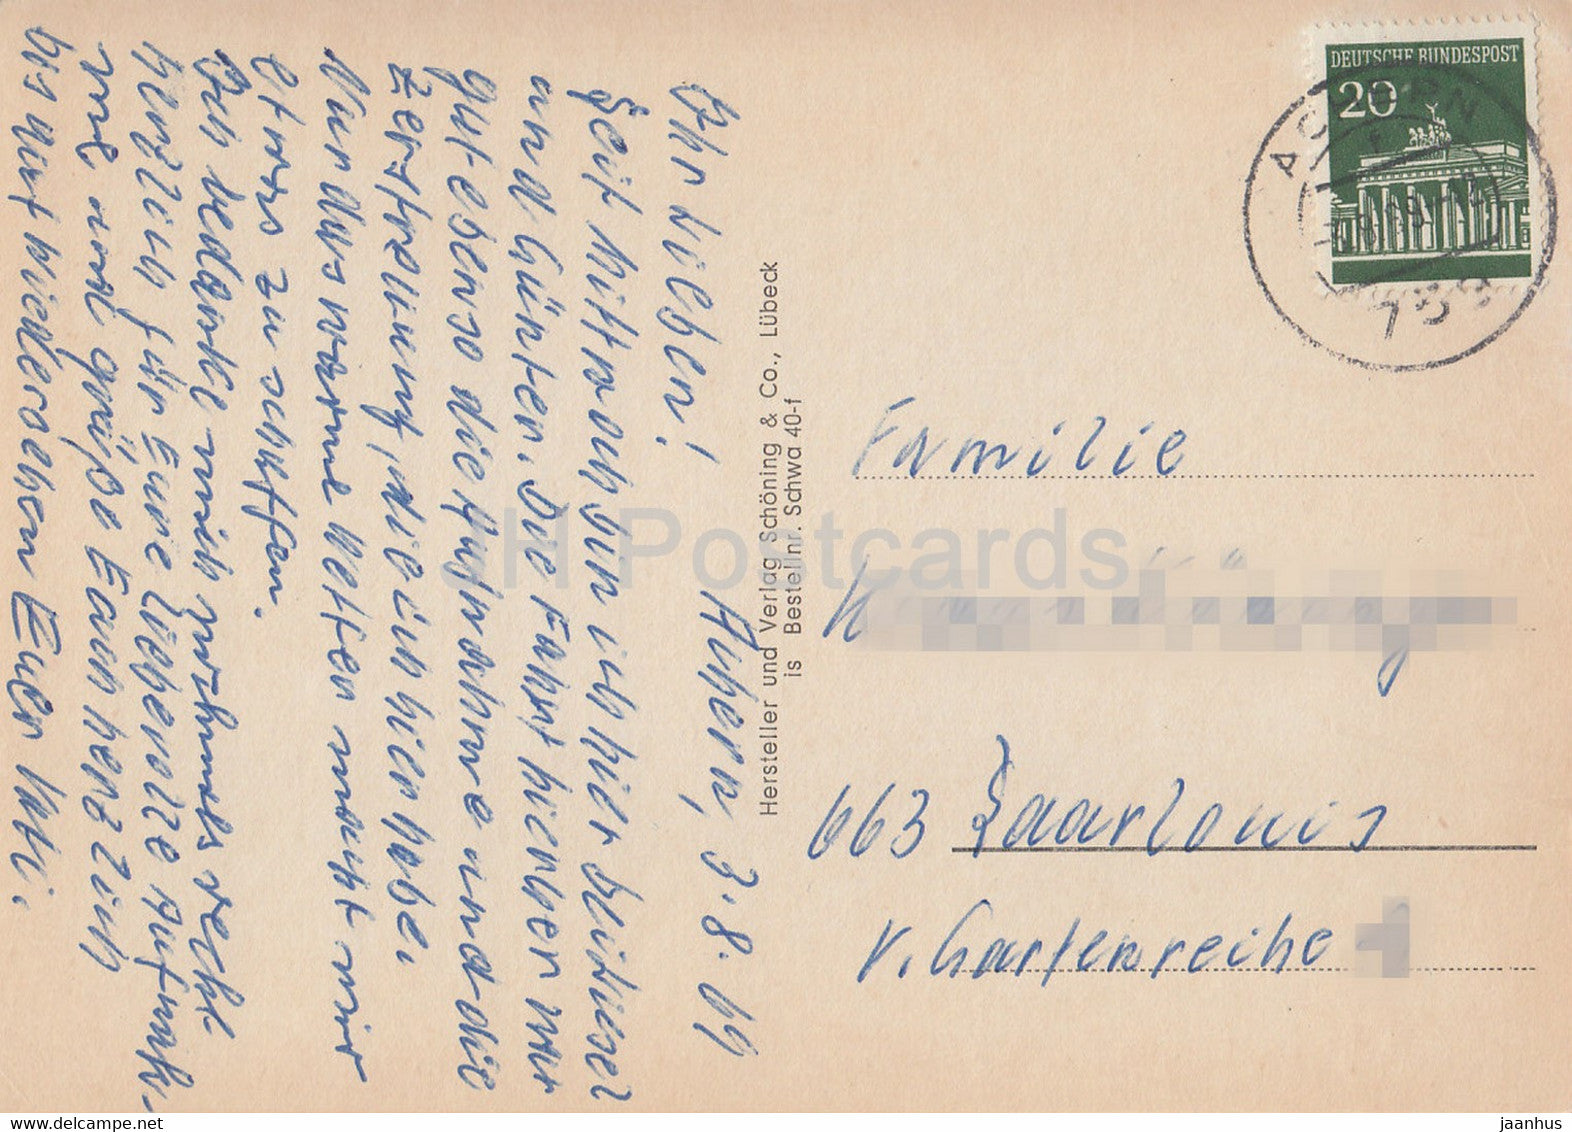 Achern, 3.8.69
Ihr Lieben!
Seit Mittwoch bin ich hier bei Liesel
und Günter. Die Fahrt hierher war
gut ebenso die Aufnahme und die
Zerstreuung, die ich hier habe.
Nur das warme Wetter macht mir
etwas zu schaffen.
Ich bedanke mich nochmals recht
herzlich für Eure liebevolle Aufnah-
me und grüße Euch herzlich
bis auf Wiedersehen Euer
Hersteller und Verlag Schöning & Co., Lübeck
is Bestellnr. Schwa 40-f
DEUTSCHE BUNDESPOST
20
ACHERN
Familie
663 Saarlouis
V. Gartenreihe
JH Postcards
jaanhus